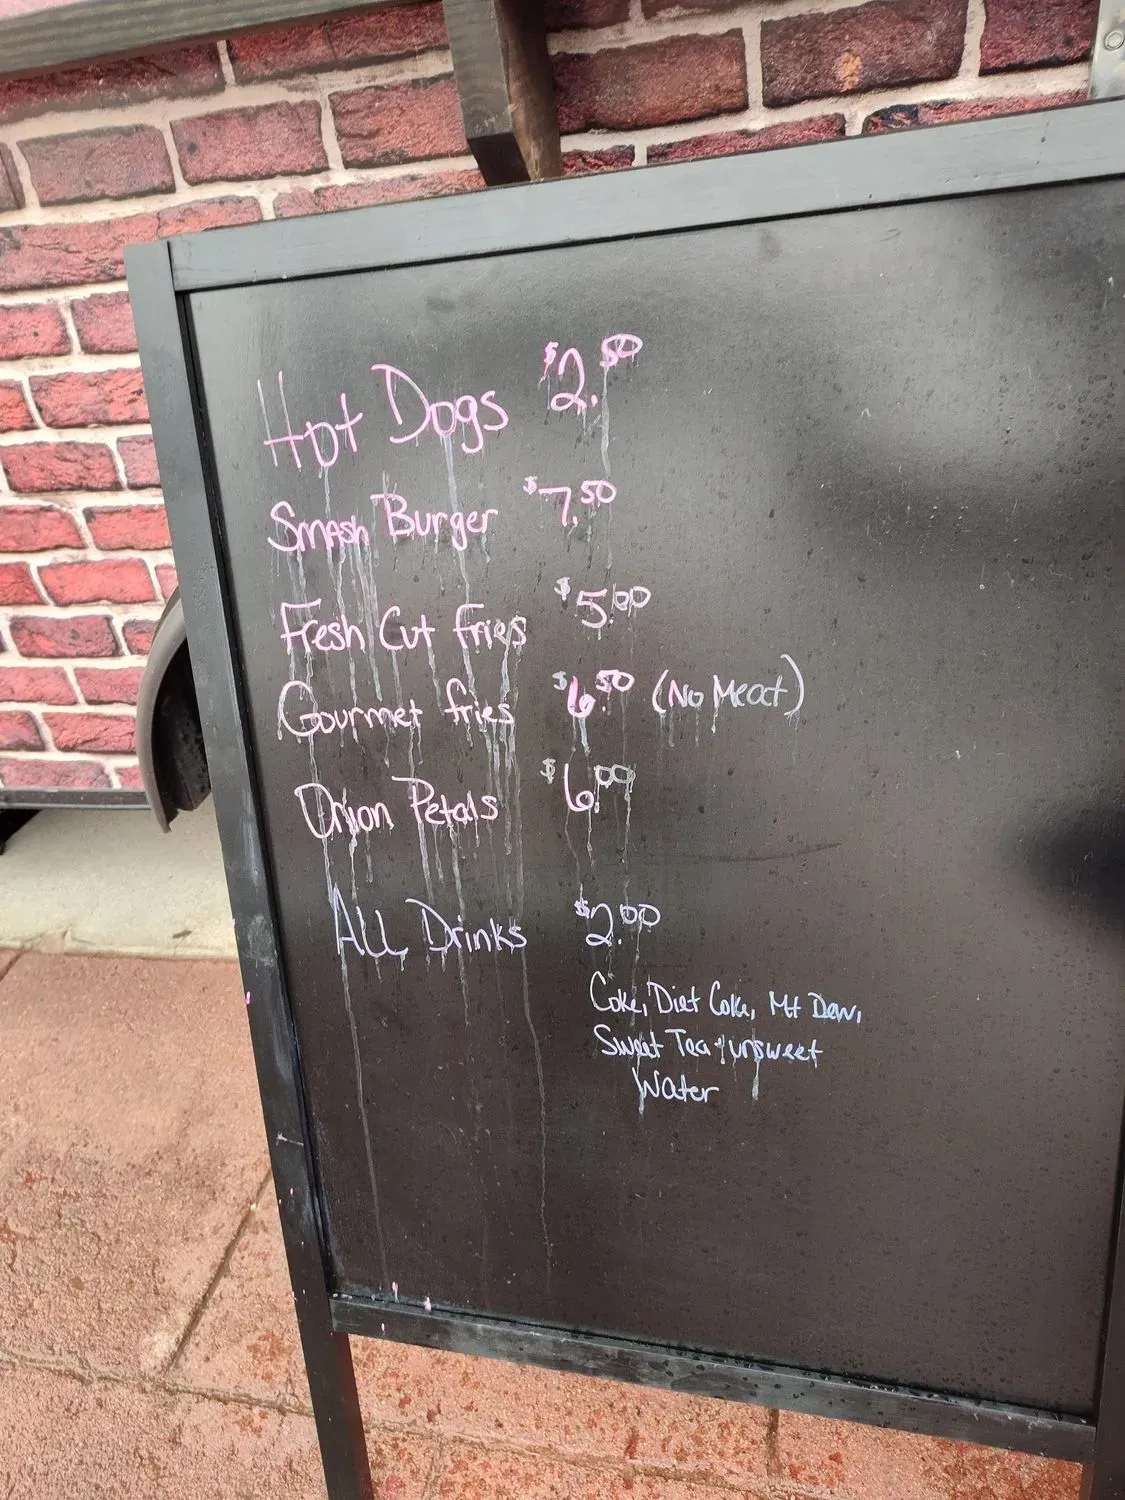 Hot Dogs $2.50
Smash Burger $7.50
Fresh Cut fries $5.00
Gourmet fries $6.50 (No Meat)
Onion Petals $6.00
ALL Drinks $2.00
Coke, Diet Coke, Mt Dew,
Sweet Tea + unsweet
Water